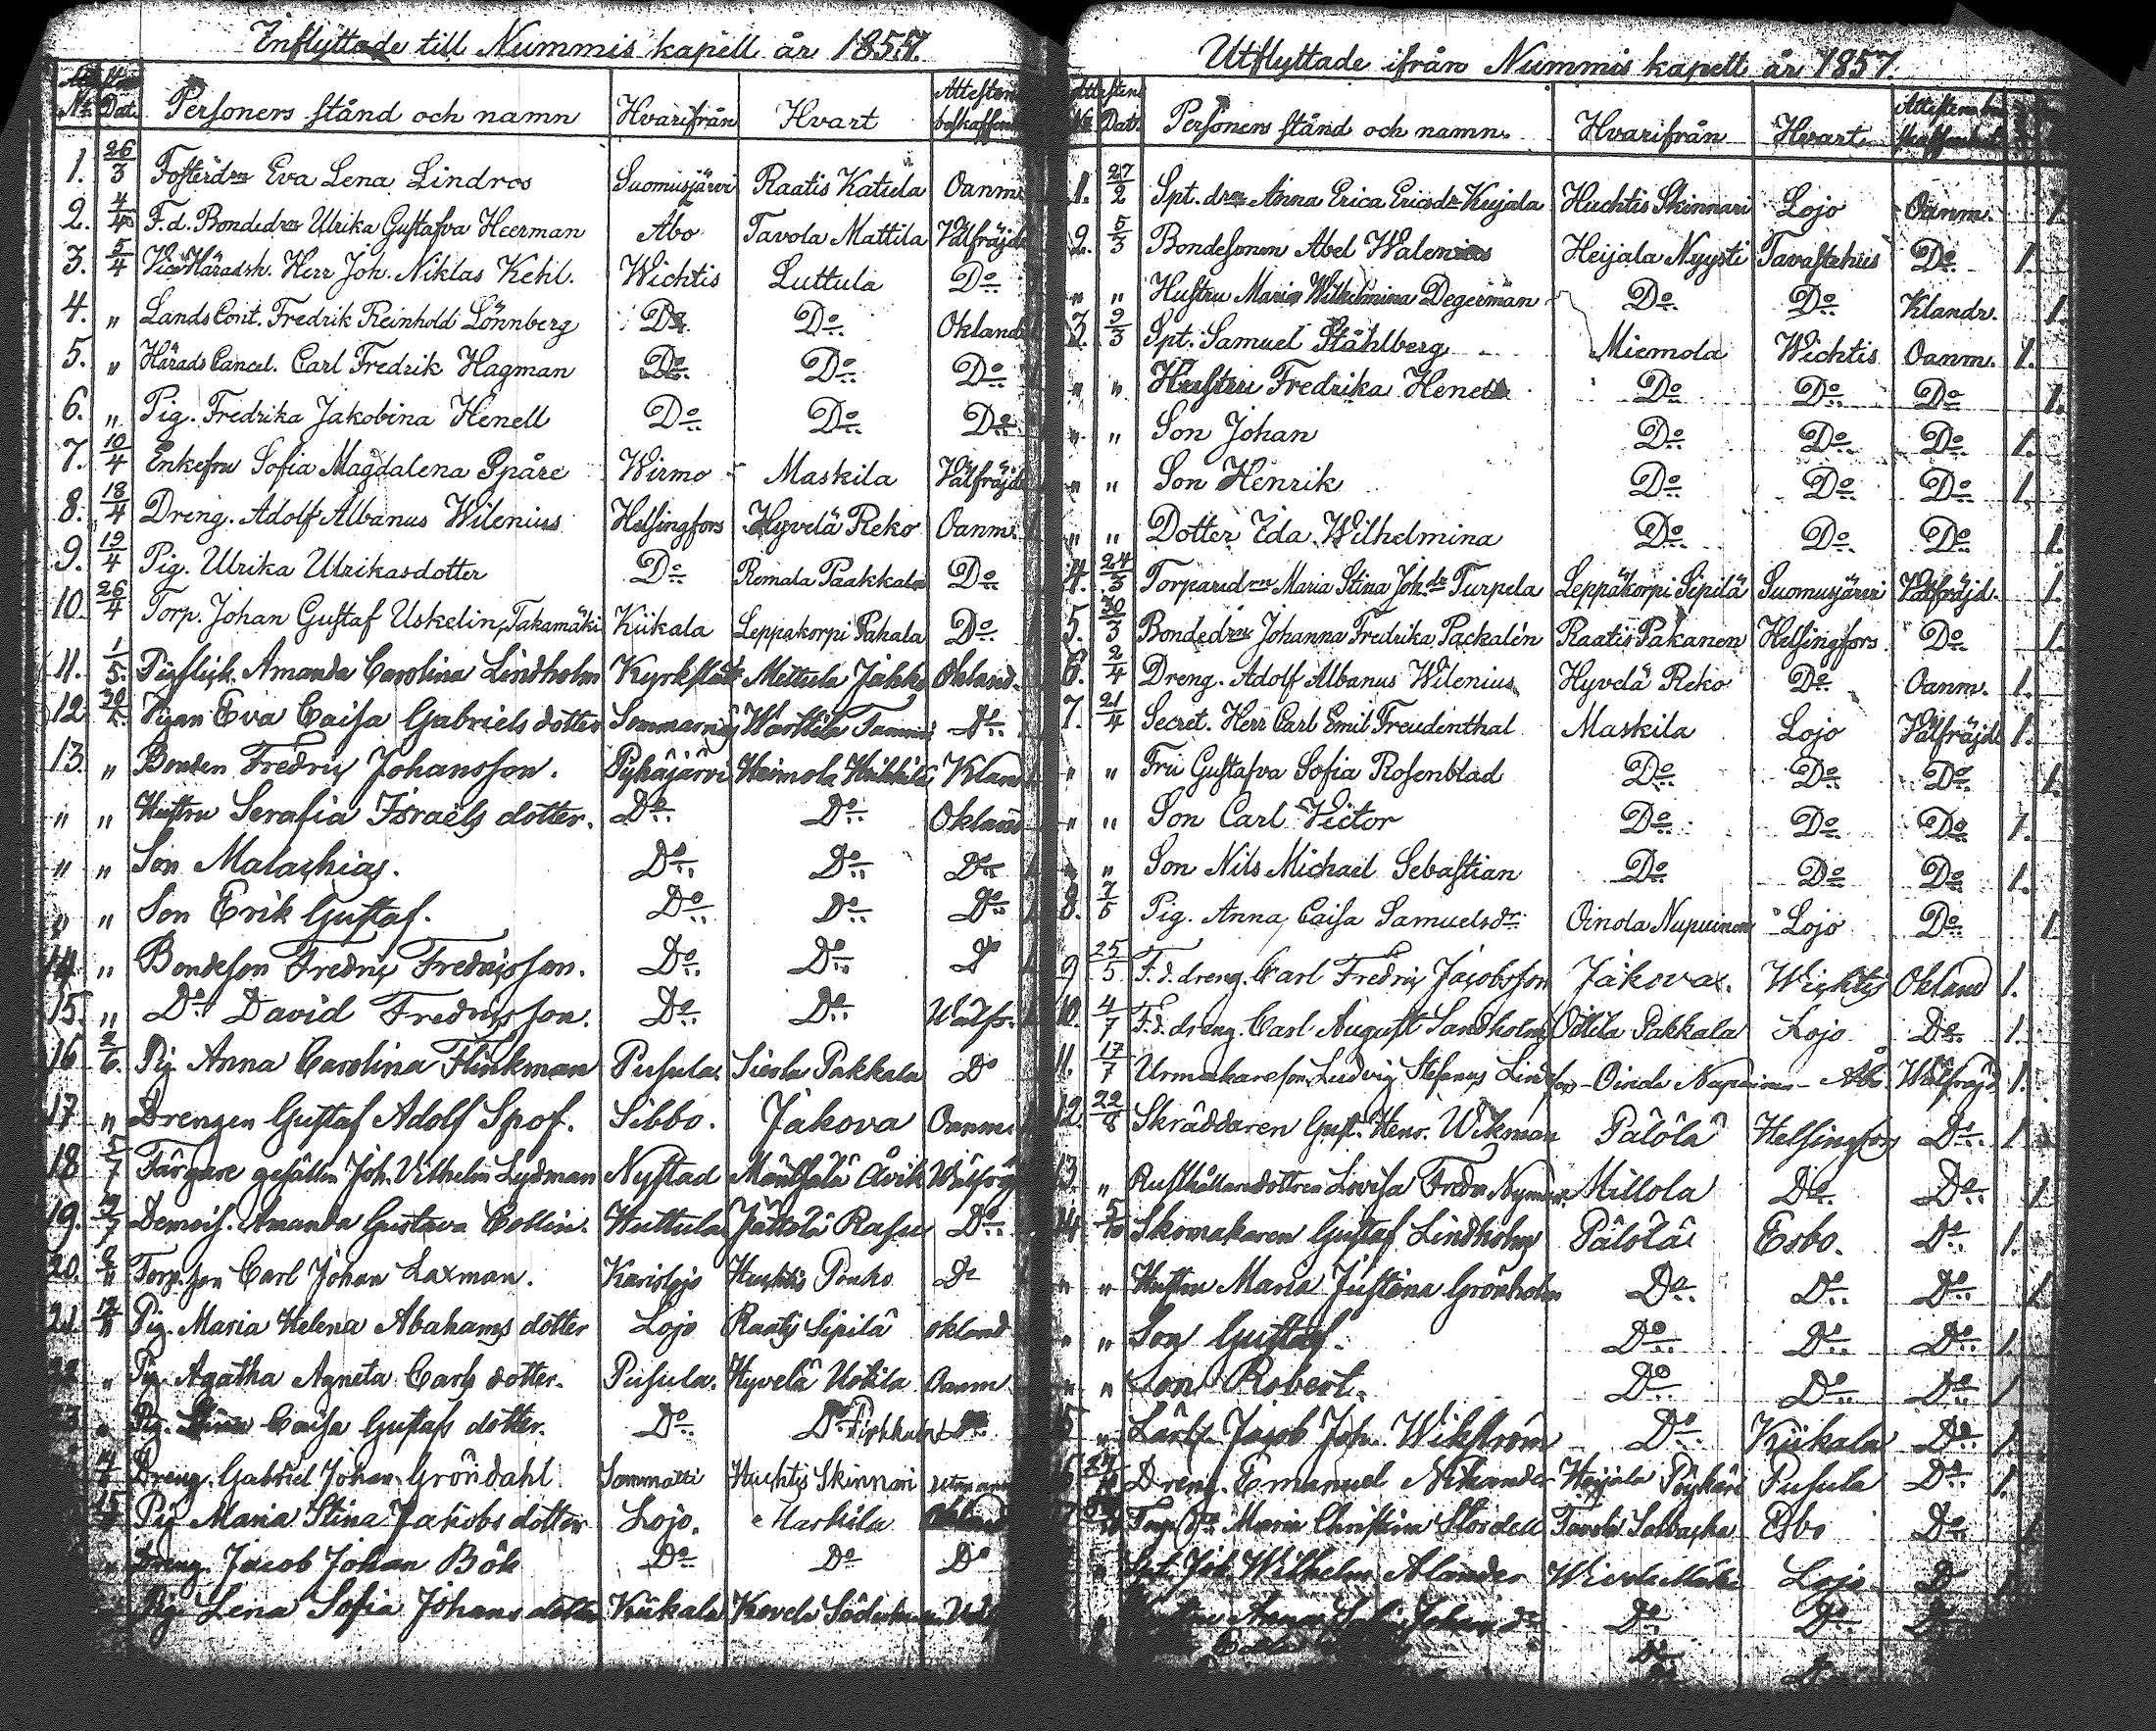 Inflyttade till Nummis kapell år 1857.
No. Dat. Personers stånd och namn Hvarifrån Hvart Attestens beskaffen
1. 26/3 Fosterdrn Eva Lena Lindros Suomusjärvi Raatis Katula Oanm.
2. 4/4 F. d. Bondedrn Ulrika Gustafva Heerman Abo Tavola Mattila Välfräjd
3. 5/4 Vice Häradsh. Herr Joh. Niklas Kehl. Wichtis Luttula Do
4. " Lands Cont. Fredrik Reinhold Lönnberg Do Do Okland
5. " Härads Cancel. Carl Fredrik Hagman Do Do Do
6. " Pig. Fredrika Jakobina Henell Do Do Do
7. 10/4 Enkefru Sofia Magdalena Spåre Wirmo Maskila Välfräjd
8. 18/4 Dreng. Adolf Albanus Wilenius Helsingfors Hyvelä Reko Oanm.
9. 19/4 Pig. Ulrika Ulrikasdotter Do Remala Paakkala Do
10. 26/4 Torp. Johan Gustaf Uskelin, Takamäki Kiikala Leppakorpi Pahala Do
11. 1/5. Amanda Carolina Lindholm Kyrkslätt Mettula Jakko Okland.
12. Pigan Eva Caisa Gabriels dotter Sommarnäs Do
13. " Bonden Fredrix Johansson. Pyhäjärvi Heimola Kland
" " Hustru Serafia Israels dotter. Do Do Okland
" " Son Malachias. Do Do Do
" " Son Erik Gustaf. Do Do Do
14. " Bondeson Fredrix Fredrixsson. Do Do Do
15. " Do David Fredrixsson. Do Do Wälfr.
16 2/6. Pig. Anna Carolina Flinkman Pusula Sierla Pakkala Do
17 " Drengen Gustaf Adolf Spof. Sibbo. Jakova Oanm.
18 5/7 Färgare gesällen Joh. Vilhelm Lydman Nystad Mäntsälä Åvik Wälfräj
19. Demois. Amanda Gustava Collin. Huttula Jättölä Rasu Do
20. Torp. son Carl Johan Laxman. Karislojo Huchtis Do
21 Pig. Maria Helena Abahams dotter Lojo Raatis Sipilä okland
22 " Pig. Agatha Agneta Carls dotter. Pusula. Hyvelä Uotila Oanm
23 " Pig. Caisa Gustafs dotter. Do Do
Dreng. Gabriel Johan Gröndahl Sammatti Huchtis Skinnari
Pig Maria Stina Jakobs dotter Lojo. Maskila Okland
" Dreng. Jacob Johan Bök Do Do Do
Pig Lena Sofia Johans dotter Kiikala
Utflyttade ifrån Nummis kapell år 1857.
Attestens No Dat. Personers stånd och namn. Hvarifrån Hvart Attestens beskaffenhet
1. 27/2 Spt. drn Anna Erica Ericsdr Kujala Huchtis Skinnari Lojo Oanm. 1.
2. 5/3 Bondesonen Abel Walenius Heijala Nyysti Tavastehus Do 1.
" " Hustru Maria Wilhelmina Degerman Do Do Klandr. 1.
3. 9/3 Spt. Samuel Ståhlberg Miemola Wichtis Oanm. 1.
" " Hustru Fredrika Henell Do Do Do 1.
" " Son Johan Do Do Do 1.
" " Son Henrik Do Do Do 1.
" " Dotter Ida Wilhelmina Do Do Do 1.
4. 24/3 Torparedrn Maria Stina Joh.dr Turpela Leppäkorpi Sipilä Suomusjärvi Välfräjd. 1.
5. 30/3 Bondedrn Johanna Fredrika Packalén Raatis Pakanen Helsingfors Do 1.
6. 2/4 Dreng. Adolf Albanus Wilenius Hyvelä Reko Do Oanm. 1.
7. 21/4 Secret. Herr Carl Emil Freudenthal Maskila Lojo Välfräjd 1.
" " Fru Gustafva Sofia Rosenblad Do Do Do 1.
" " Son Carl Victor Do Do Do 1.
" " Son Nils Michael Sebastian Do Do Do 1.
8. 7/5 Pig. Anna Caisa Samuelsdr Oinola Nupuinen Lojo Do 1.
9 25/5 F. d. dreng. Carl Fredrix Jacobsson Jakova. Wichtis Okland 1.
10. 4/7 F. d. dreng. Carl August Sandholm Ottila Pakkala Lojo Do 1.
11. 17/7 Urmakareson Ludvig Stefanus Lindfors Oinola Nupuinen Åbo Wälfräjd 1.
12. 22/8 Skräddaren Gust. Henr. Wikman Pälölä Helsingfors Do 1
13. " Rusthållaredottren Lovisa Fredr. Nyman. Millola Do Do 1
14. 5/10 Skomakaren Gustaf Lindholm Pälölä Esbo. Do 1.
" " Hustru Maria Justina Grönholm Do Do Do 1
" " Son Gustaf. Do Do Do 1
" " Son Robert. Do Do Do 1
15 " Lärl. Jacob Joh. Wikström Do Kiikala Do 1
Dreng. Emanuel Nikander Heijala Pöykäri Pusula Do 1.
Maria Christina Stordell Esbo Do
Spt. Joh. Wilhelm Alander Lojo D
Do Do Do
Do